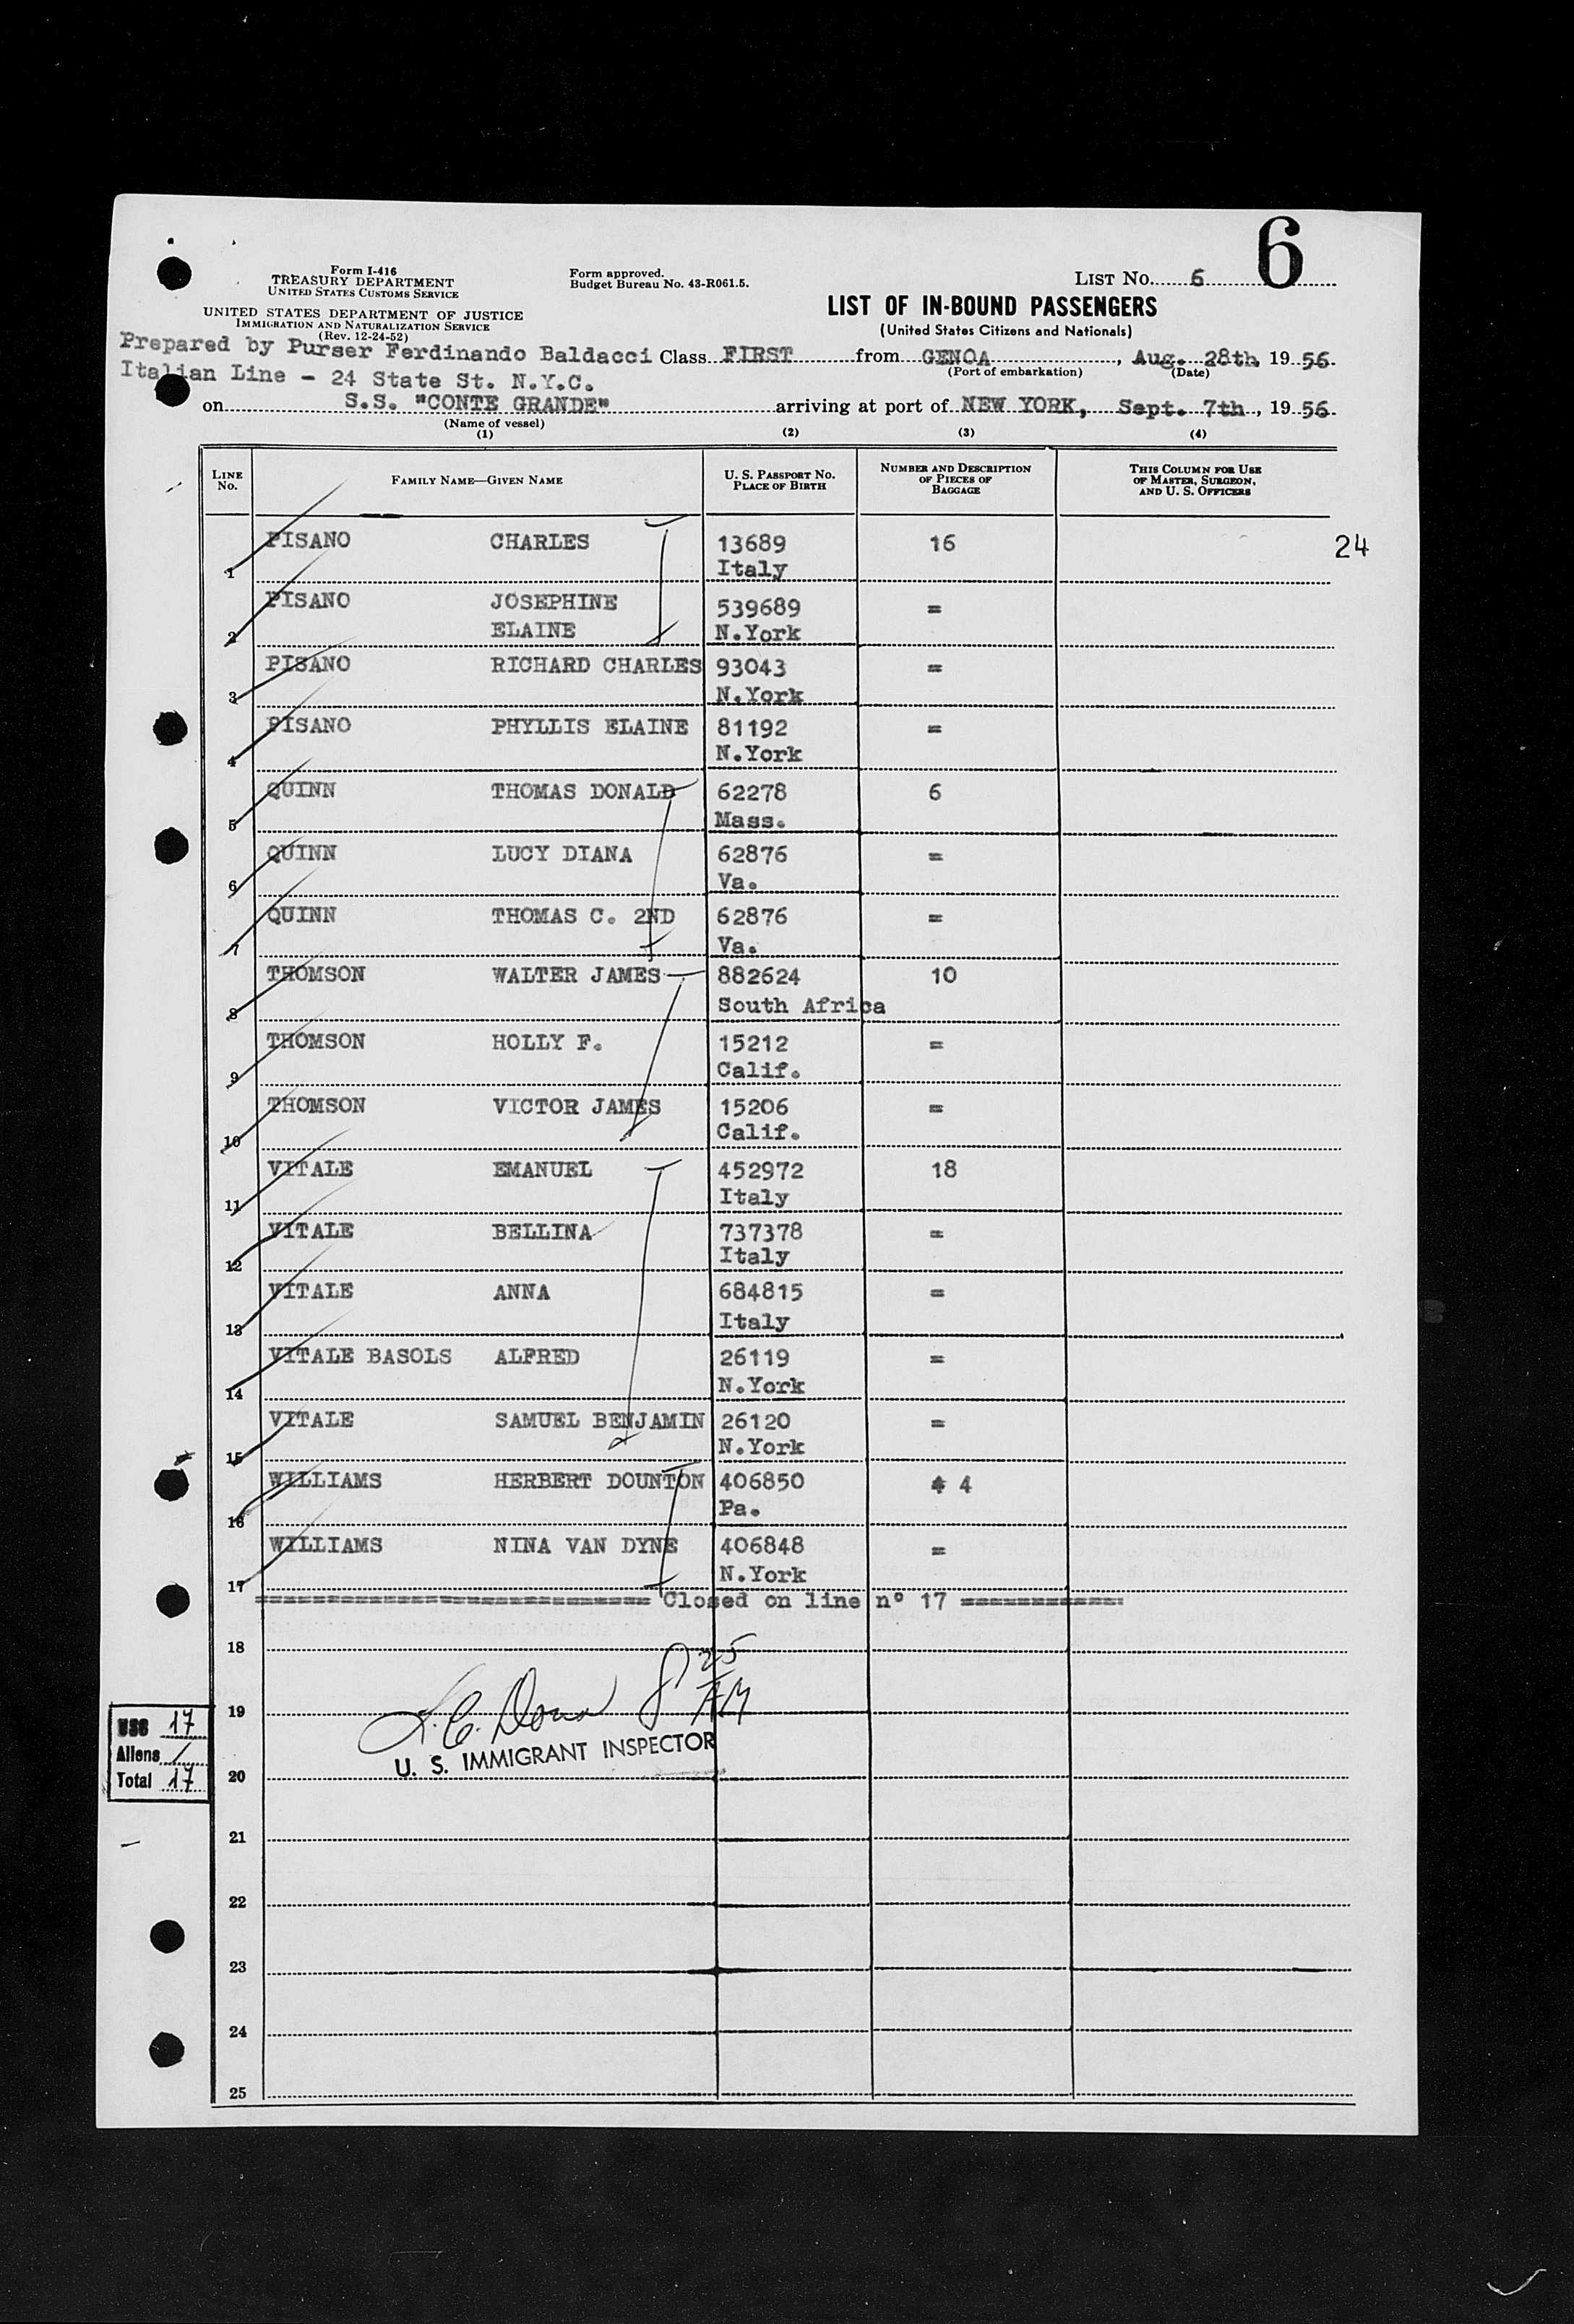 6
Form I-416
TREASURY DEPARTMENT
UNITED STATES CUSTOMS SERVICE
UNITED STATES DEPARTMENT OF JUSTICE
IMMIGRATION AND NATURALIZATION SERVICE
(Rev. 12-24-52)
Form approved.
Budget Bureau No. 43-R061.5.
LIST NO. 6
LIST OF IN-BOUND PASSENGERS
(United States Citizens and Nationals)
Prepared by Purser Ferdinando Baldacci Class FIRST from GENOA, Aug. 28th, 19 56.
(Port of embarkation) (Date)
Italian Line - 24 State St. N.Y.C.
on S.S. "CONTE GRANDE" arriving at port of NEW YORK, Sept. 7th, 19 56.
(Name of vessel)
(1) (2) (3) (4)
LINE No. FAMILY NAME—GIVEN NAME U. S. PASSPORT NO. PLACE OF BIRTH NUMBER AND DESCRIPTION OF PIECES OF BAGGAGE THIS COLUMN FOR USE OF MASTER, SURGEON, AND U. S. OFFICERS
PISANO CHARLES 13689 16 24
1 Italy
PISANO JOSEPHINE 539689 =
2 ELAINE N.York
PISANO RICHARD CHARLES 93043 =
3 N.York
PISANO PHYLLIS ELAINE 81192 =
4 N.York
QUINN THOMAS DONALD 62278 6
5 Mass.
QUINN LUCY DIANA 62876 =
6 Va.
QUINN THOMAS C. 2ND 62876 =
7 Va.
THOMSON WALTER JAMES 882624 10
8 South Africa
THOMSON HOLLY F. 15212 =
9 Calif.
THOMSON VICTOR JAMES 15206 =
10 Calif.
VITALE EMANUEL 452972 18
11 Italy
VITALE BELLINA 737378 =
12 Italy
VITALE ANNA 684815 =
13 Italy
VITALE BASOLS ALFRED 26119 =
14 N.York
VITALE SAMUEL BENJAMIN 26120 =
15 N.York
WILLIAMS HERBERT DOUNTON 406850 4
16 Pa.
WILLIAMS NINA VAN DYNE 406848 =
17 N.York
Closed on line nº 17
18
8 25 AM
19
U. S. IMMIGRANT INSPECTOR
USC 17
Aliens /
Total 17
20
21
22
23
24
25